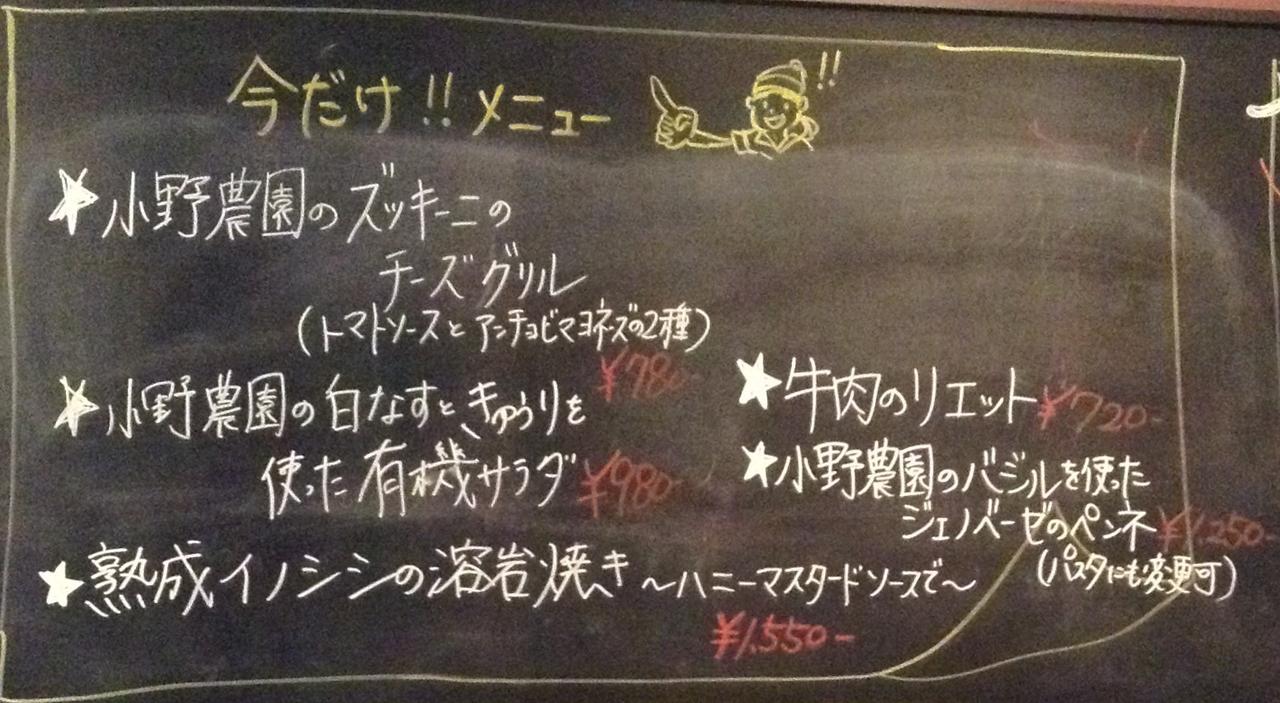 今だけ!!メニュー !!
★小野農園のズッキーニの
チーズグリル
(トマトソースとアンチョビマヨネーズの2種)
¥780-
★小野農園の白なすと、きゅうりを
使った有機サラダ ¥980-
★熟成イノシシの溶岩焼き 〜ハニーマスタードソースで〜
¥1.550-
★牛肉のリエット ¥720-
★小野農園のバジルを使った
ジェノベーゼのペンネ ¥1.250-
(パスタにも変更可)